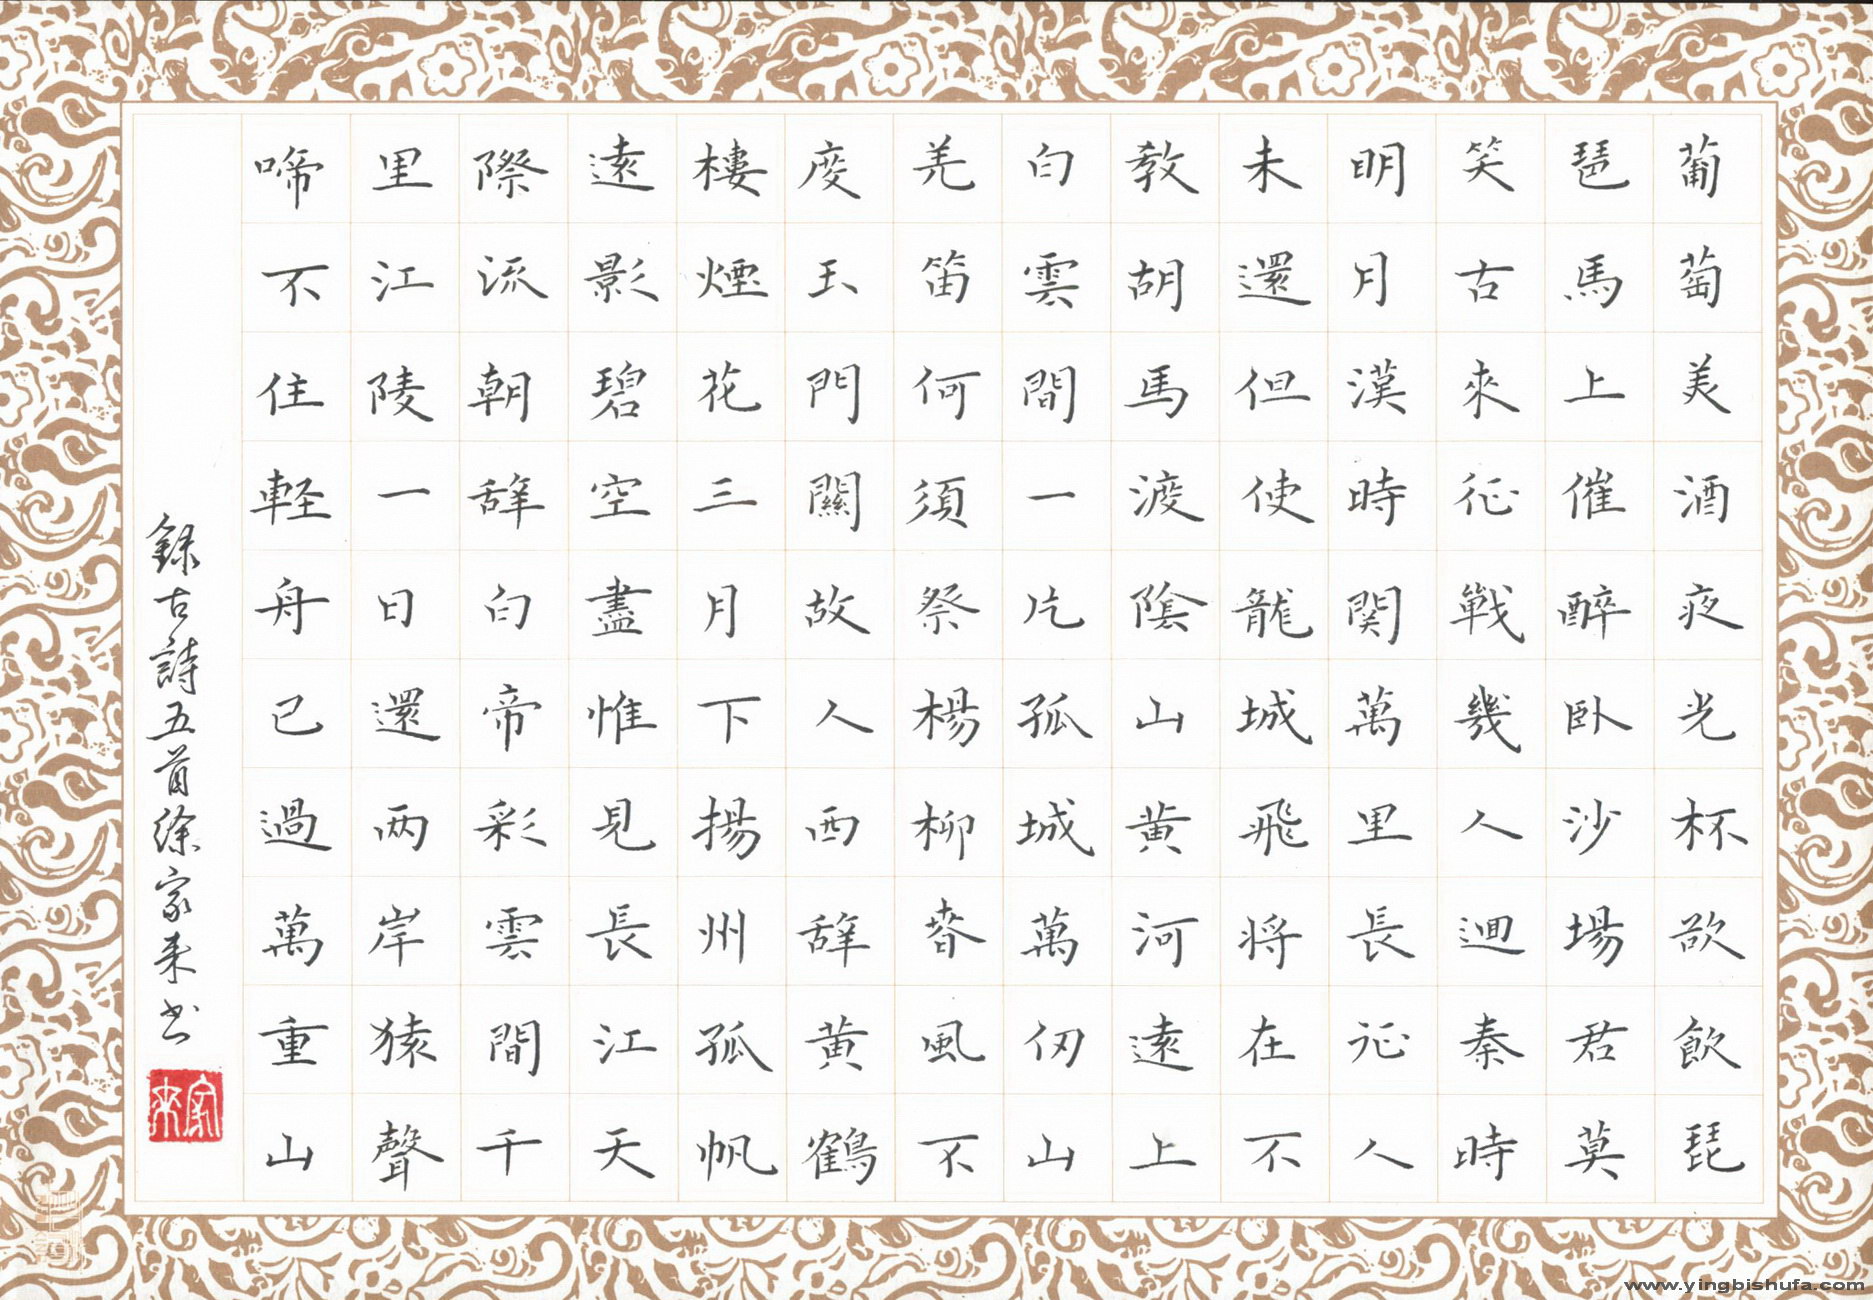 葡萄美酒夜光杯欲飲琵
琶馬上催醉臥沙場君莫
笑古來征戰幾人迴秦時
明月漢時関萬里長征人
未還但使龍城飛将在不
教胡馬渡陰山黄河遠上
白雲間一片孤城萬仞山
羌笛何須祭楊柳春風不
度玉門關故人西辞黄鶴
樓煙花三月下揚州孤帆
遠影碧空盡惟見長江天
際流朝辞白帝彩雲間千
里江陵一日還两岸猿聲
啼不住軽舟已過萬重山
録古詩五首徐家来书
家来
www.yingbishufa.com